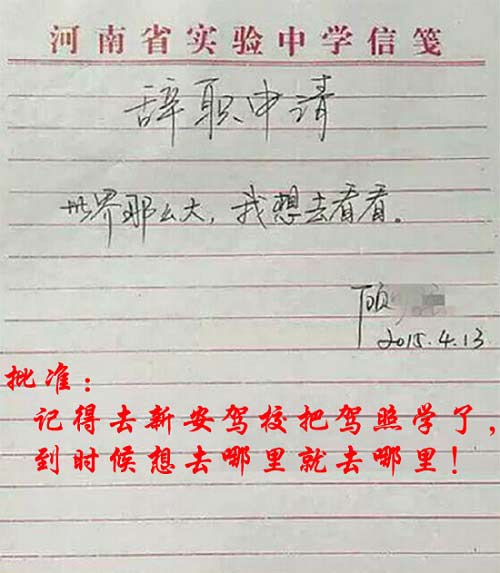 河南省实验中学信笺
辞职申请
世界那么大，我想去看看。
顾
2015.4.13
批准：
记得去新安驾校把驾照学了，
到时候想去哪里就去哪里！